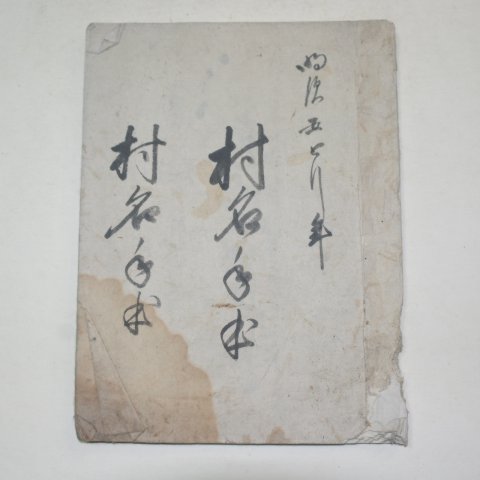 明治とり年
村名手本
村名手本